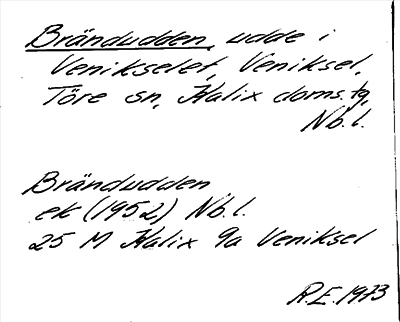 Brändudden, udde i
Venikselet, Veniksel,
Töre sn, Kalix doms.tg,
Nb.l.
Brändudden
ek (1952) Nb.l.
25 M Kalix 9a Veniksel
R.E. 1973